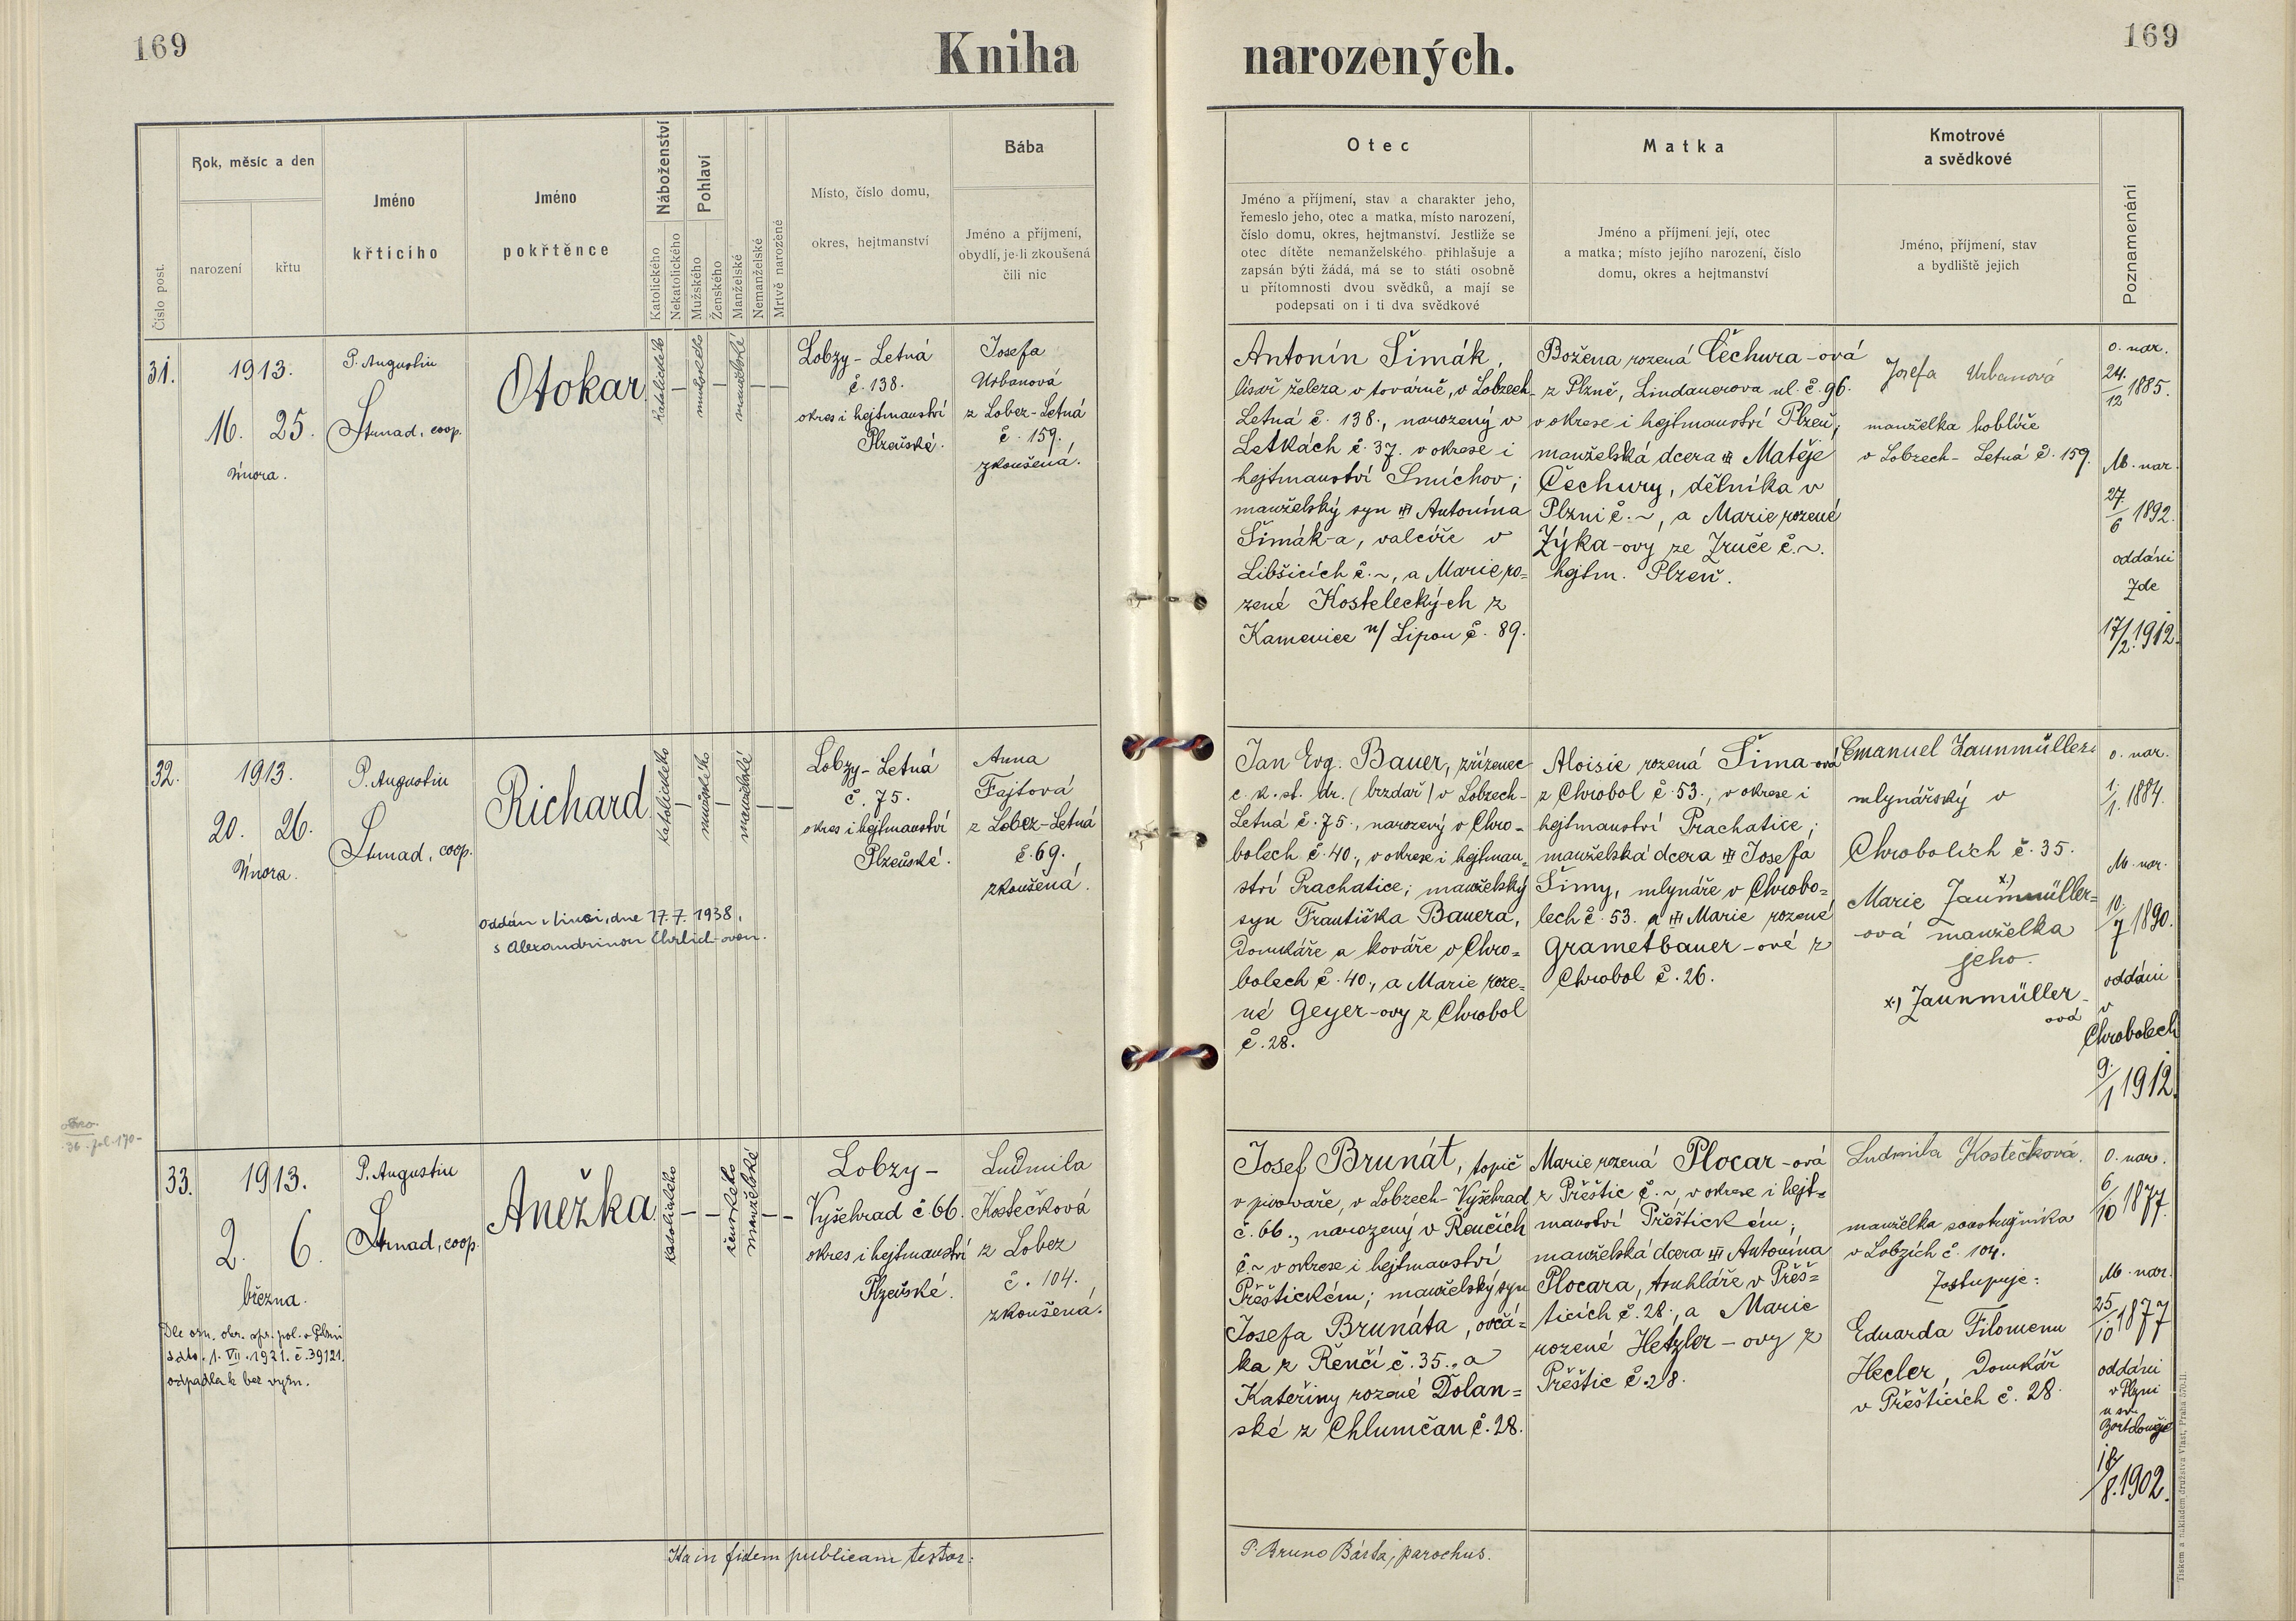 169
Kniha
narozených.
169
Číslo post.
Rok, měsíc a den
narození
křtu
Jméno
křticího
Jméno
pokřtěnce
Náboženství
Katolického
Nekatolického
Pohlaví
Mužského
Ženského
Manželské
Nemanželské
Mrtvě narozené
Místo, číslo domu,
okres, hejtmanství
Bába
Jméno a příjmení,
obydlí, je-li zkoušená
čili nic
Otec
Jméno a příjmení, stav a charakter jeho,
řemeslo jeho, otec a matka, místo narození,
číslo domu, okres, hejtmanství. Jestliže se
otec dítěte nemanželského přihlašuje a
zapsán býti žádá, má se to státi osobně
u přítomnosti dvou svědků, a mají se
podepsati on i ti dva svědkové
Matka
Jméno a příjmení její, otec
a matka; místo jejího narození, číslo
domu, okres a hejtmanství
Kmotrové
a svědkové
Jméno, příjmení, stav
a bydliště jejich
Poznamenání
31.
1913.
16. 25.
Února.
P. Augustin
Strnad, coop.
Otokar
katolického
mužského
manželské
Lobzy - Letná
č. 138.
okres i hejtmanství
Plzeňské.
Josefa
Urbanová
z Lobez-Letná
č. 159.,
zkoušená.
Antonín Šimák,
lisař železa v továrně, v Lobzech-
Letná č. 138., narozený v
Letkách č. 37. v okrese i
hejtmanství Smíchov;
manželský syn Antonína
Šimák-a, valcíře v
Libšicích č. ~, a Marie ro=
zené Kosteleckých z
Kamenice n/ Lipou č. 89.
Božena rozená Čechura-ová
z Plzně, Lindauerova ul. č. 96.
v okrese i hejtmanství Plzeň,
manželská dcera Matěje
Čechury, dělníka v
Plzni č. ~, a Marie rozené
Zýka-ovy ze Zruče č. ~.
hejtm. Plzeň.
Josefa Urbanová
manželka hoblíře
v Lobzech - Letná č. 159.
O. nar.
24./12 1885.
M. nar.
27./6 1892.
oddáni
zde
17/2. 1912.
32.
1913.
20. 26.
Února.
P. Augustin
Strnad, coop.
Richard
katolického
mužského
manželské
oddán v Linci, dne 17. 7. 1938,
s Alexandrinou Ehrlich-ovou.
Lobzy - Letná
č. 75.
okres i hejtmanství
Plzeňské.
Anna
Fajtová
z Lobez-Letná
č. 69.
zkoušená.
Jan Evg. Bauer, zřízenec
c. k. st. dr. (brzdař) v Lobzech-
Letná č. 75., narozený v Chro-
bolech č. 40., v okrese i hejtman=
ství Prachatice; manželský
syn Františka Bauera,
Domkáře a kováře v Chro=
bolech č. 40., a Marie roze=
né Geyer-ovy z Chrobol
č. 28.
Aloisie rozená Šima-ová
z Chrobol č. 53., v okrese i
hejtmanství Prachatice;
manželská dcera Josefa
Šimy, mlynáře v Chrobo=
lech č. 53. a Marie rozené
Grametbauer-ové z
Chrobol č. 26.
Emanuel Zaunmüller
mlynářský v
Chrobolích č. 35.
Marie Zaunmüller=
-ová manželka
jeho.
x.) Zaunmüller-
ová
O. nar.
1./1. 1884.
M. nar.
10./7 1890.
oddáni
v
Chrobolech
9./1 1912.
36. fol. 170-
33.
1913.
2. 6.
března.
Dle ozn. okr. spr. pol. v Plzni
ddto. 1. VII. 1921. č. 39121.
odpadla k bez vyzn.
P. Augustin
Strnad, coop.
Anežka
katolického
ženského
manželské
Lobzy -
Vyšehrad č. 66.
okres i hejtmanství
Plzeňské.
Ludmila
Kostečková
z Lobez
č. 104.
zkoušená.
Josef Brunát, topič
v pivovaře, v Lobzech-Vyšehrad
č. 66., narozený v Řenčích
č. ~ v okrese i hejtmanství
Přeštickém; manželský syn
Josefa Brunáta, ovčá=
ka z Řenčí č. 35., a
Kateřiny rozené Dolan=
ské z Chlumčan č. 28.
Marie rozená Plocar-ová
z Přeštic č. ~, v okrese i hejt=
manství Přeštickém;
manželská dcera Antonína
Plocara, truhláře v Přeš=
ticích č. 28., a Marie
rozené Hetzler-ovy z
Přeštic č. 28.
Ludmila Kostečková.
manželka soustružníka
v Lobzích č. 104.
Zastupuje:
Eduarda Filomenu
Hecler, Domkář
v Přešticích č. 28.
O. nar.
6/10 1877.
M. nar.
25/10 1877
oddáni
v Plzni
u sv.
Bartoloměje
18/8. 1902.
Ita in fidem publicam testor:
P. Bruno Bárta, parochus.
Tiskem a nákladem družstva Vlast, Praha 570-II.